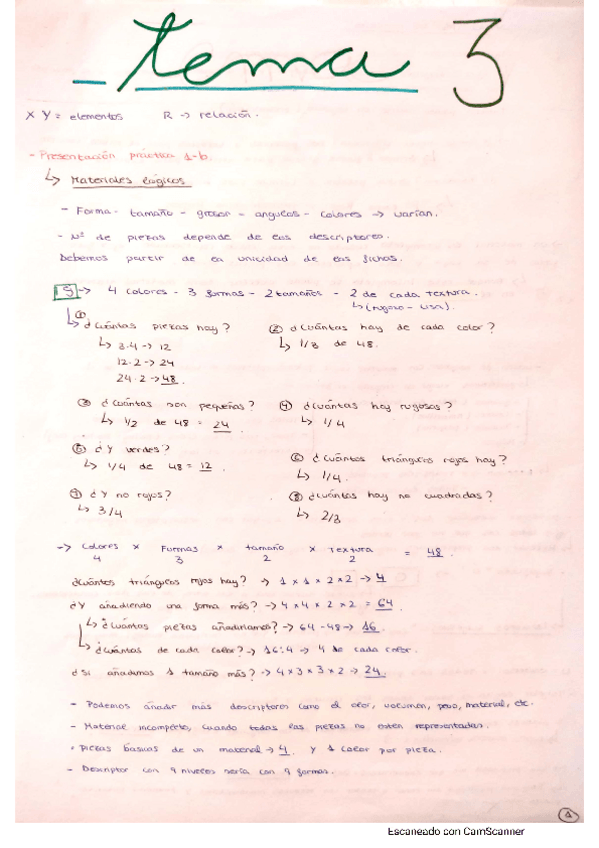 tema 3
X Y = elementos R → relación.
- Presentación práctica 1-b
↳ Materiales lógicos
- Forma - tamaño - grosor - angulos - colores → varían.
- Nº de piezas depende de los descriptores.
Debemos partir de la unicidad de las fichas.
→ 4 colores - 3 formas - 2 tamaños - 2 de cada textura.
↳ (rugoso - lisa).
① ¿Cuántas piezas hay?
↳ 3·4 → 12
12·2 → 24
24·2 → 48.
② ¿Cuántas hay de cada color?
↳ 1/3 de 48.
③ ¿Cuántas son pequeñas?
↳ 1/2 de 48 = 24
④ ¿Cuántas hay rugosas?
↳ 1/4
⑤ ¿Y verdes?
↳ 1/4 de 48 = 12.
⑥ ¿Cuántos triángulos rojos hay?
↳ 1/4.
⑦ ¿Y no rojos?
↳ 3/4
⑧ ¿Cuántas hay no cuadradas?
↳ 2/3
→ Colores x Formas x tamaño x Textura = 48.
4 3 2 2
¿Cuántos triángulos rojos hay? → 1 x 1 x 2 x 2 → 4
¿Y añadiendo una forma más? → 4 x 4 x 2 x 2 = 64
↳ ¿Cuántas piezas añadiríamos? → 64 - 48 → 16
↳ ¿Cuántas de cada color? → 16:4 → 4 de cada color.
¿Si añadimos 1 tamaño más? → 4 x 3 x 3 x 2 → 24.
- Podemos añadir más descriptores como el olor, volumen, peso, material, etc.
- Material incompleto, cuando todas las piezas no estén representadas.
· Piezas básicas de un material → 4 y 1 color por pieza.
- Descriptor con 9 niveles sería con 9 formas.
1
Escaneado con CamScanner